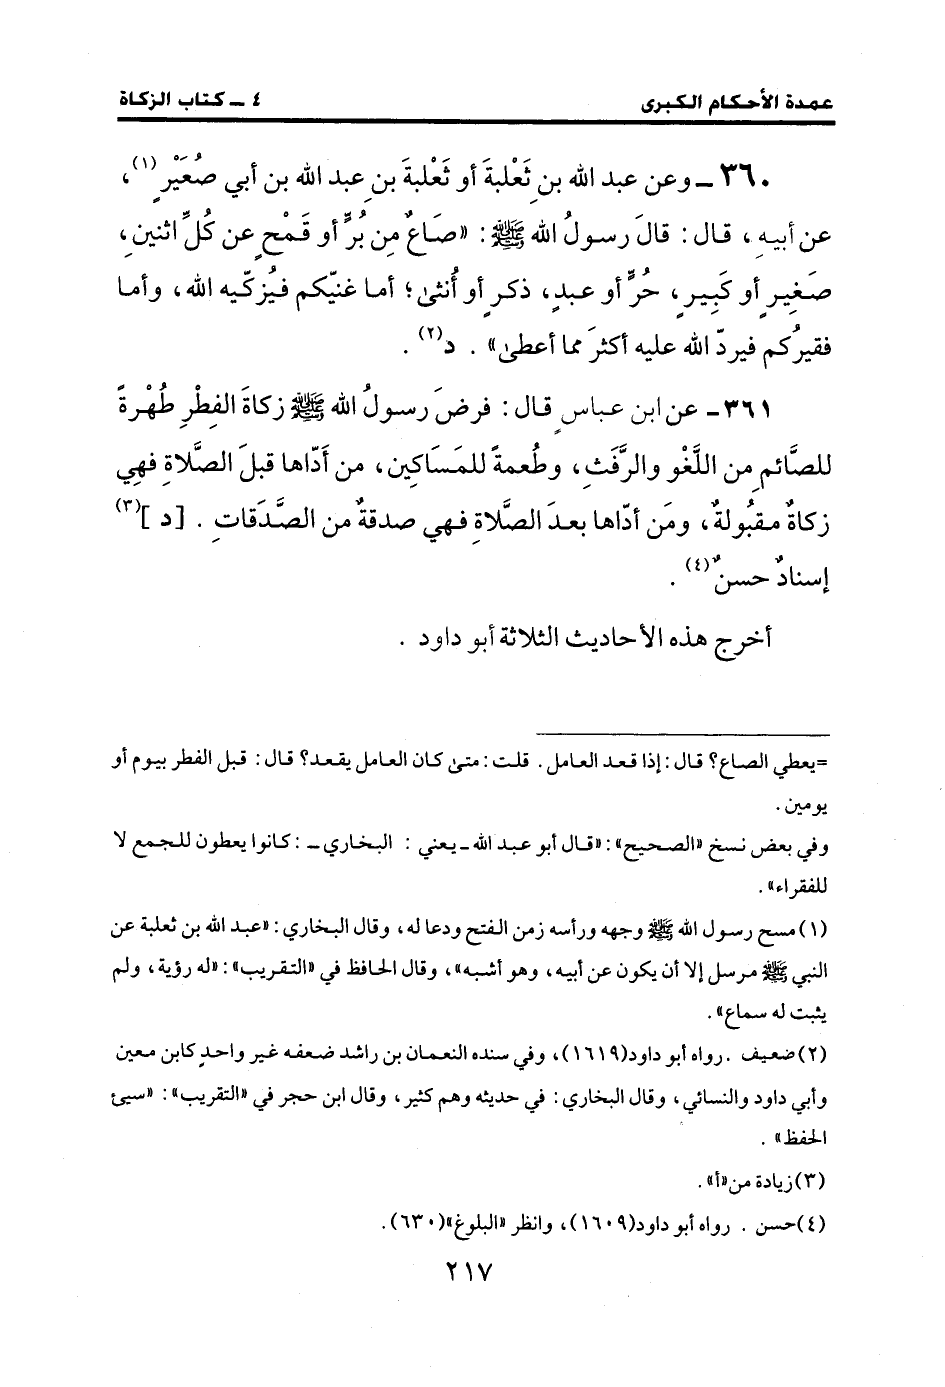 عمدة الأحكام الكبرى ٤ ـ كتاب الزكاة
٣٦٠ ـ وعن عبد الله بنِ ثَعْلبةَ أو ثَعْلبةَ بنِ عبد الله بن أبي صُعَيْرٍ(١)،
عن أبيهِ، قال: قالَ رسولُ الله ﷺ: «صَاعٌ مِن بُرٍّ أو قَمْحٍ عن كُلِّ اثنينِ،
صَغِيرٍ أو كَبِيرٍ، حُرٍّ أو عبدٍ، ذكرٍ أو أُنثىٰ؛ أما غنيّكم فيُزكّيه الله، وأما
فقيرُكم فيردّ الله عليه أكثرَ مما أعطىٰ». د(٢).
٣٦١ ـ عن ابن عباسٍ قال: فرضَ رسولُ الله ﷺ زكاةَ الفِطْرِ طُهْرةً
للصَّائمِ من اللَّغْو والرَّفَثِ، وطُعمةً للمَسَاكينِ، من أدّاها قبلَ الصَّلاةِ فهي
زكاةٌ مقبُولةٌ، ومَن أدّاها بعدَ الصَّلاةِ فهي صدقةٌ من الصَّدَقاتِ. [د](٣)
إسنادٌ حسنٌ(٤).
أخرج هذه الأحاديث الثلاثة أبو داود.
=يعطي الصاع؟ قال: إذا قعد العامل. قلت: متىٰ كان العامل يقعد؟ قال: قبل الفطر بيوم أو
يومين.
وفي بعض نسخ «الصحيح»: «قال أبو عبد الله ـ يعني: البخاري ـ: كانوا يعطون للجمع لا
للفقراء».
(١) مسح رسول الله ﷺ وجهه ورأسه زمن الفتح ودعا له، وقال البخاري: «عبد الله بن ثعلبة عن
النبي ﷺ مرسل إلا أن يكون عن أبيه، وهو أشبه»، وقال الحافظ في «التقريب»: «له رؤية، ولم
يثبت له سماع».
(٢) ضعيف. رواه أبو داود (١٦١٩)، وفي سنده النعمان بن راشد ضعفه غير واحدٍ كابن معين
وأبي داود والنسائي، وقال البخاري: في حديثه وهم كثير، وقال ابن حجر في «التقريب»: «سيئ
الحفظ».
(٣) زيادة من «أ».
(٤) حسن. رواه أبو داود (١٦٠٩)، وانظر «البلوغ» (٦٣٠).
٢١٧